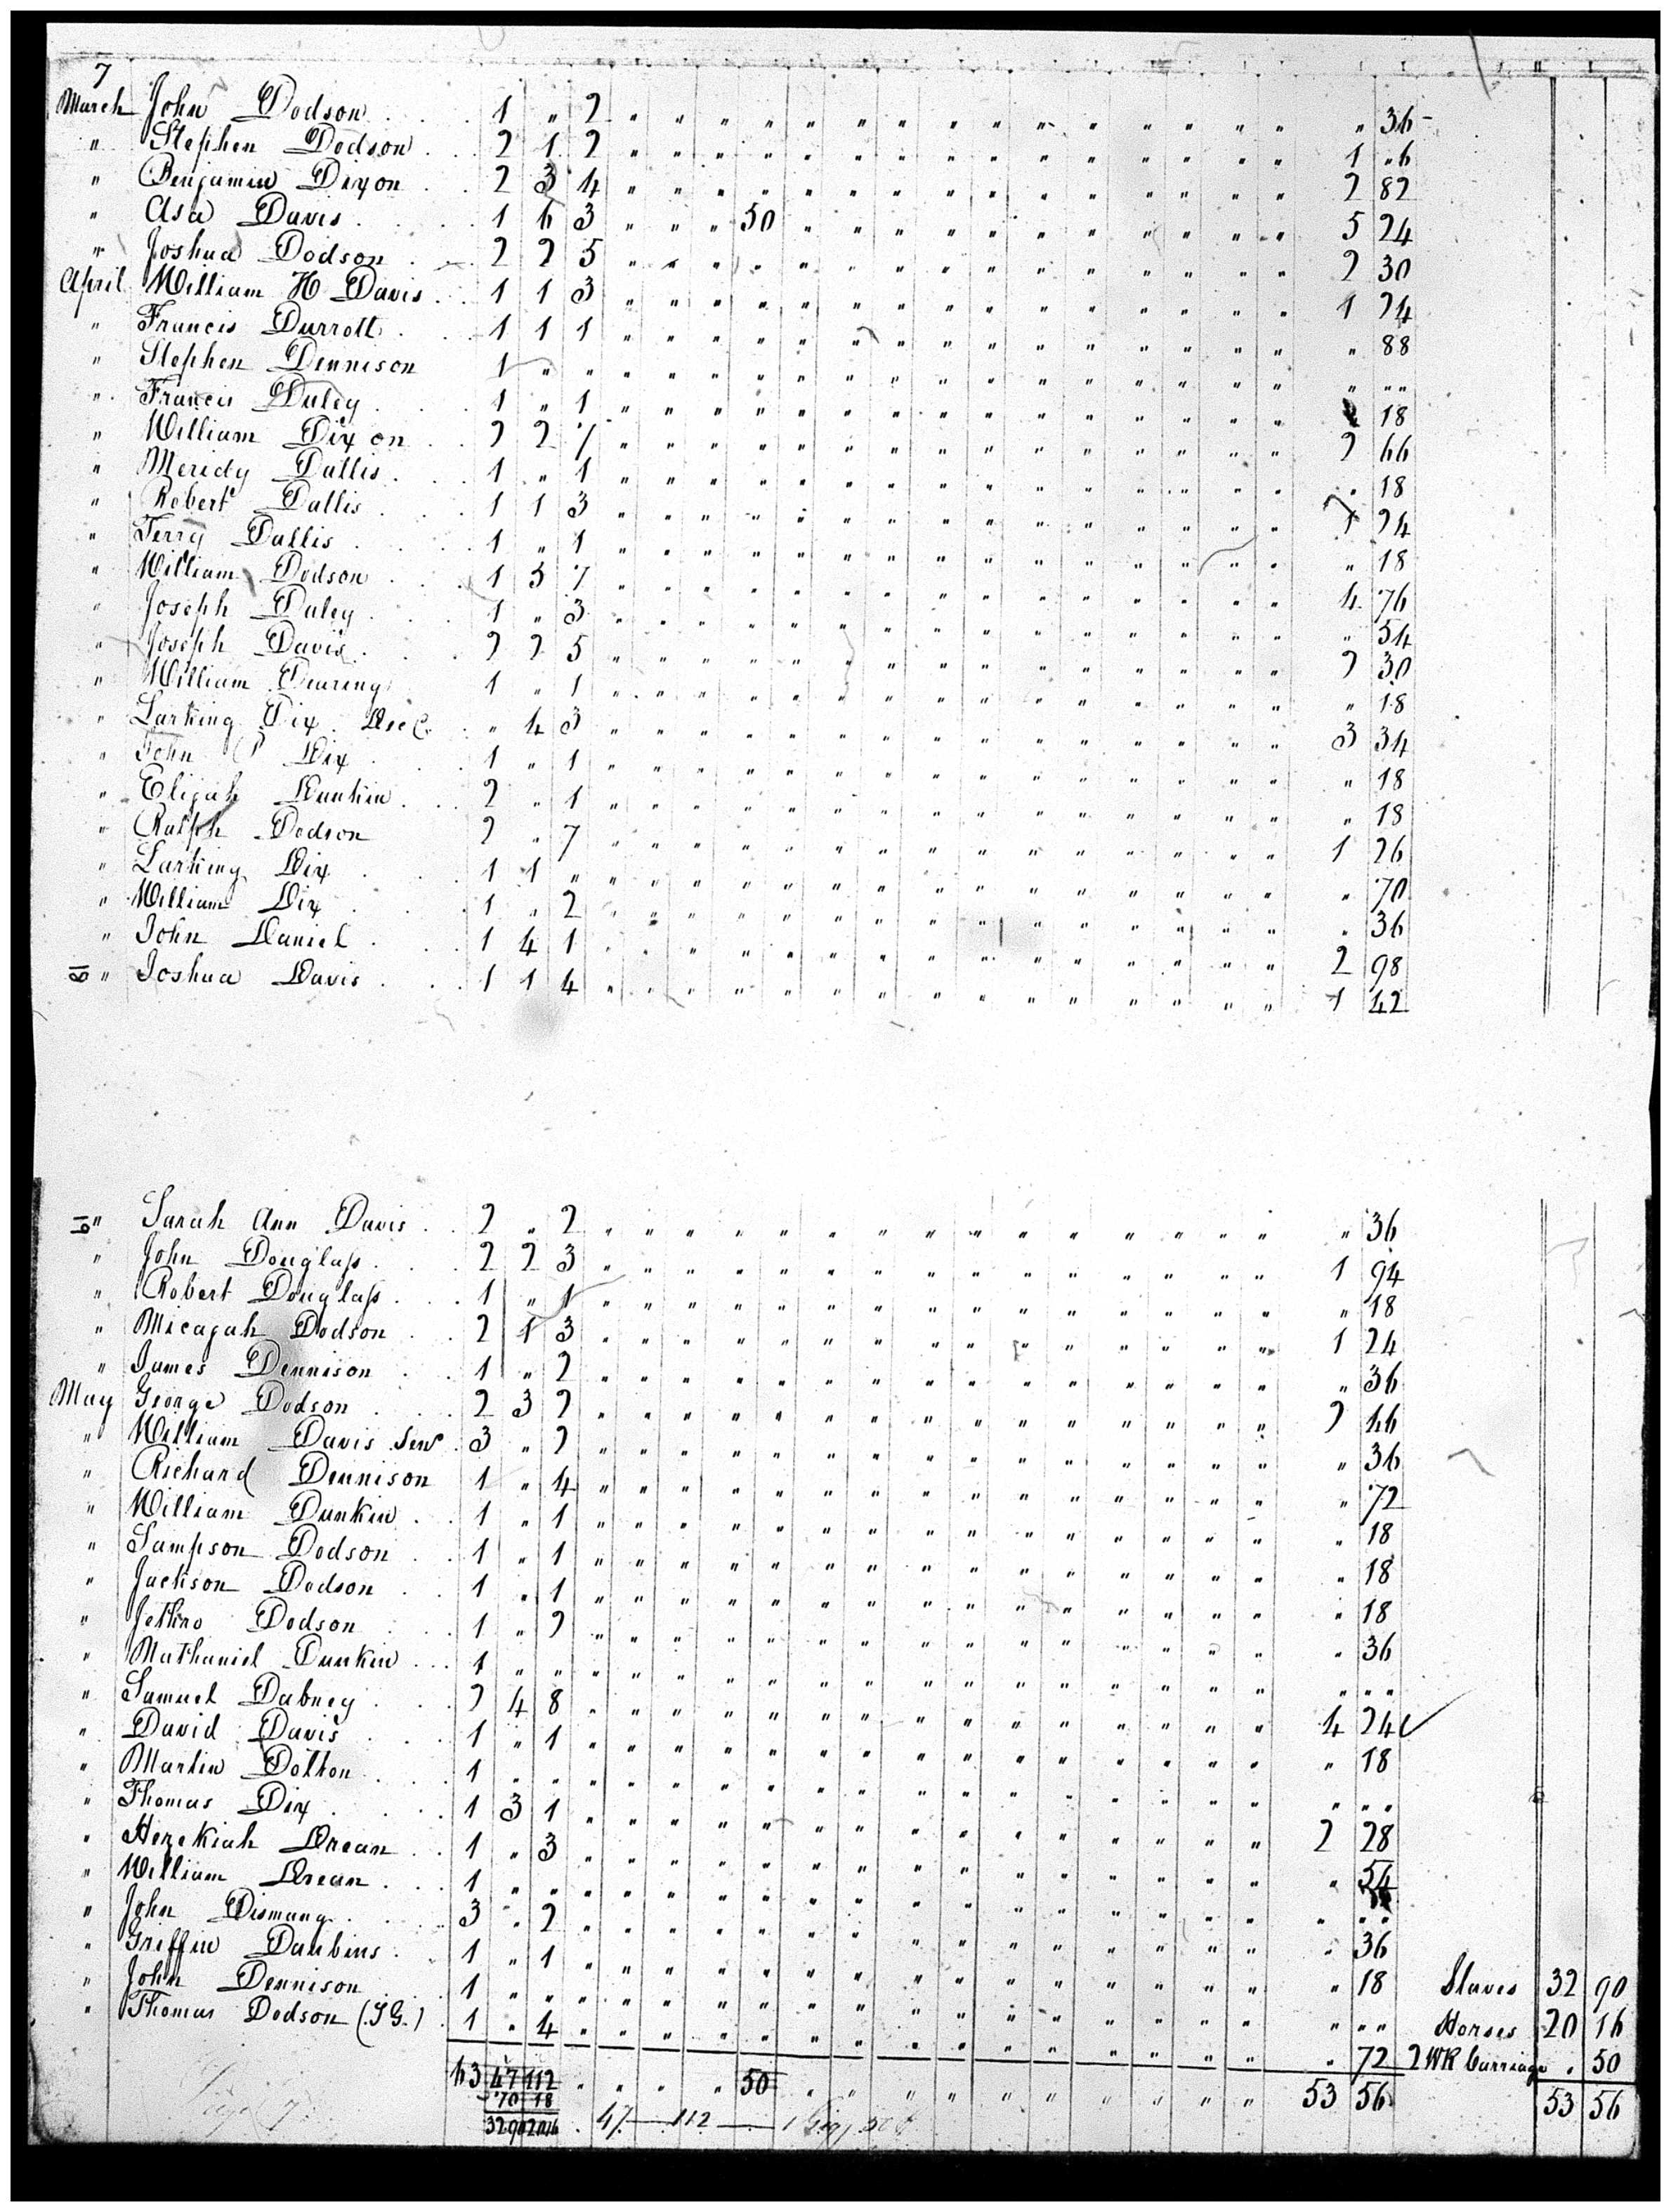 7
March John Dodson 1 " 2 " 36
" Stephen Dodson 2 1 2 1 "6
" Benjamin Dixon 2 3 4 2 82
" Asa Davis 1 6 3 " " " 50 5 24
" Joshua Dodson 2 2 5 2 30
April William H Davis 1 1 3 1 24
" Francis Durrott 1 1 1 " 88
" Stephen Dennison 1 " " " " "
" Francis Duley 1 " 1 18
" William Dixon 2 2 7 2 66
" Meridy Dallis 1 " 1 " 18
" Robert Dallis 1 1 3 1 24
" Terry Dallis 1 " 1 " 18
" William Dodson 1 5 7 4 76
" Joseph Duley 1 " 3 " 54
" Joseph Davis 2 2 5 2 30
" William Dearing 1 " 1 " 18
" Larking Dix Decd. " 4 3 3 34
" John P Dix 1 " 1 " 18
" Elijah Dunkin 2 " 1 " 18
" Ralph Dodson 2 " 7 1 26
" Larking Dix 1 1 " " 70
" William Dix 1 " 2 " 36
" John Daniel 1 4 1 2 98
" Joshua Davis 1 1 4 1 42
" Sarah Ann Davis 2 " 2 " 36
" John Douglass 2 2 3 1 94
" Robert Douglass 1 " 1 " 18
" Micajah Dodson 2 1 3 1 24
" James Dennison 1 " 2 " 36
May George Dodson 2 3 2 2 46
" William Davis Senr 3 " 2 " 36
" Richard Dennison 1 " 4 " 72
" William Dunkin 1 " 1 " 18
" Sampson Dodson 1 " 1 " 18
" Jackson Dodson 1 " 1 " 18
" Jethro Dodson 1 " 2 " 36
" Nathaniel Dunkin 1 " " " " "
" Samuel Dabney 2 4 8 4 24
" David Davis 1 " 1 " 18
" Martin Dotton 1 " " " " "
" Thomas Dix 1 3 1 2 28
" Hezekiah Drean 1 " 3 " 54
" William Drean 1 " " " " "
" John Dismang 3 " 2 " 36
" Griffin Daubins 1 " 1 " 18 Slaves 32 90
" John Dennison 1 " " " " " Horses 20 16
" Thomas Dodson (S G.) 1 " 4 " 72 2 WR Carriage " 50
63 47 112 " " " " 50 53 56 53 56
70 18
3290 2016 47 112 1 Gig 50